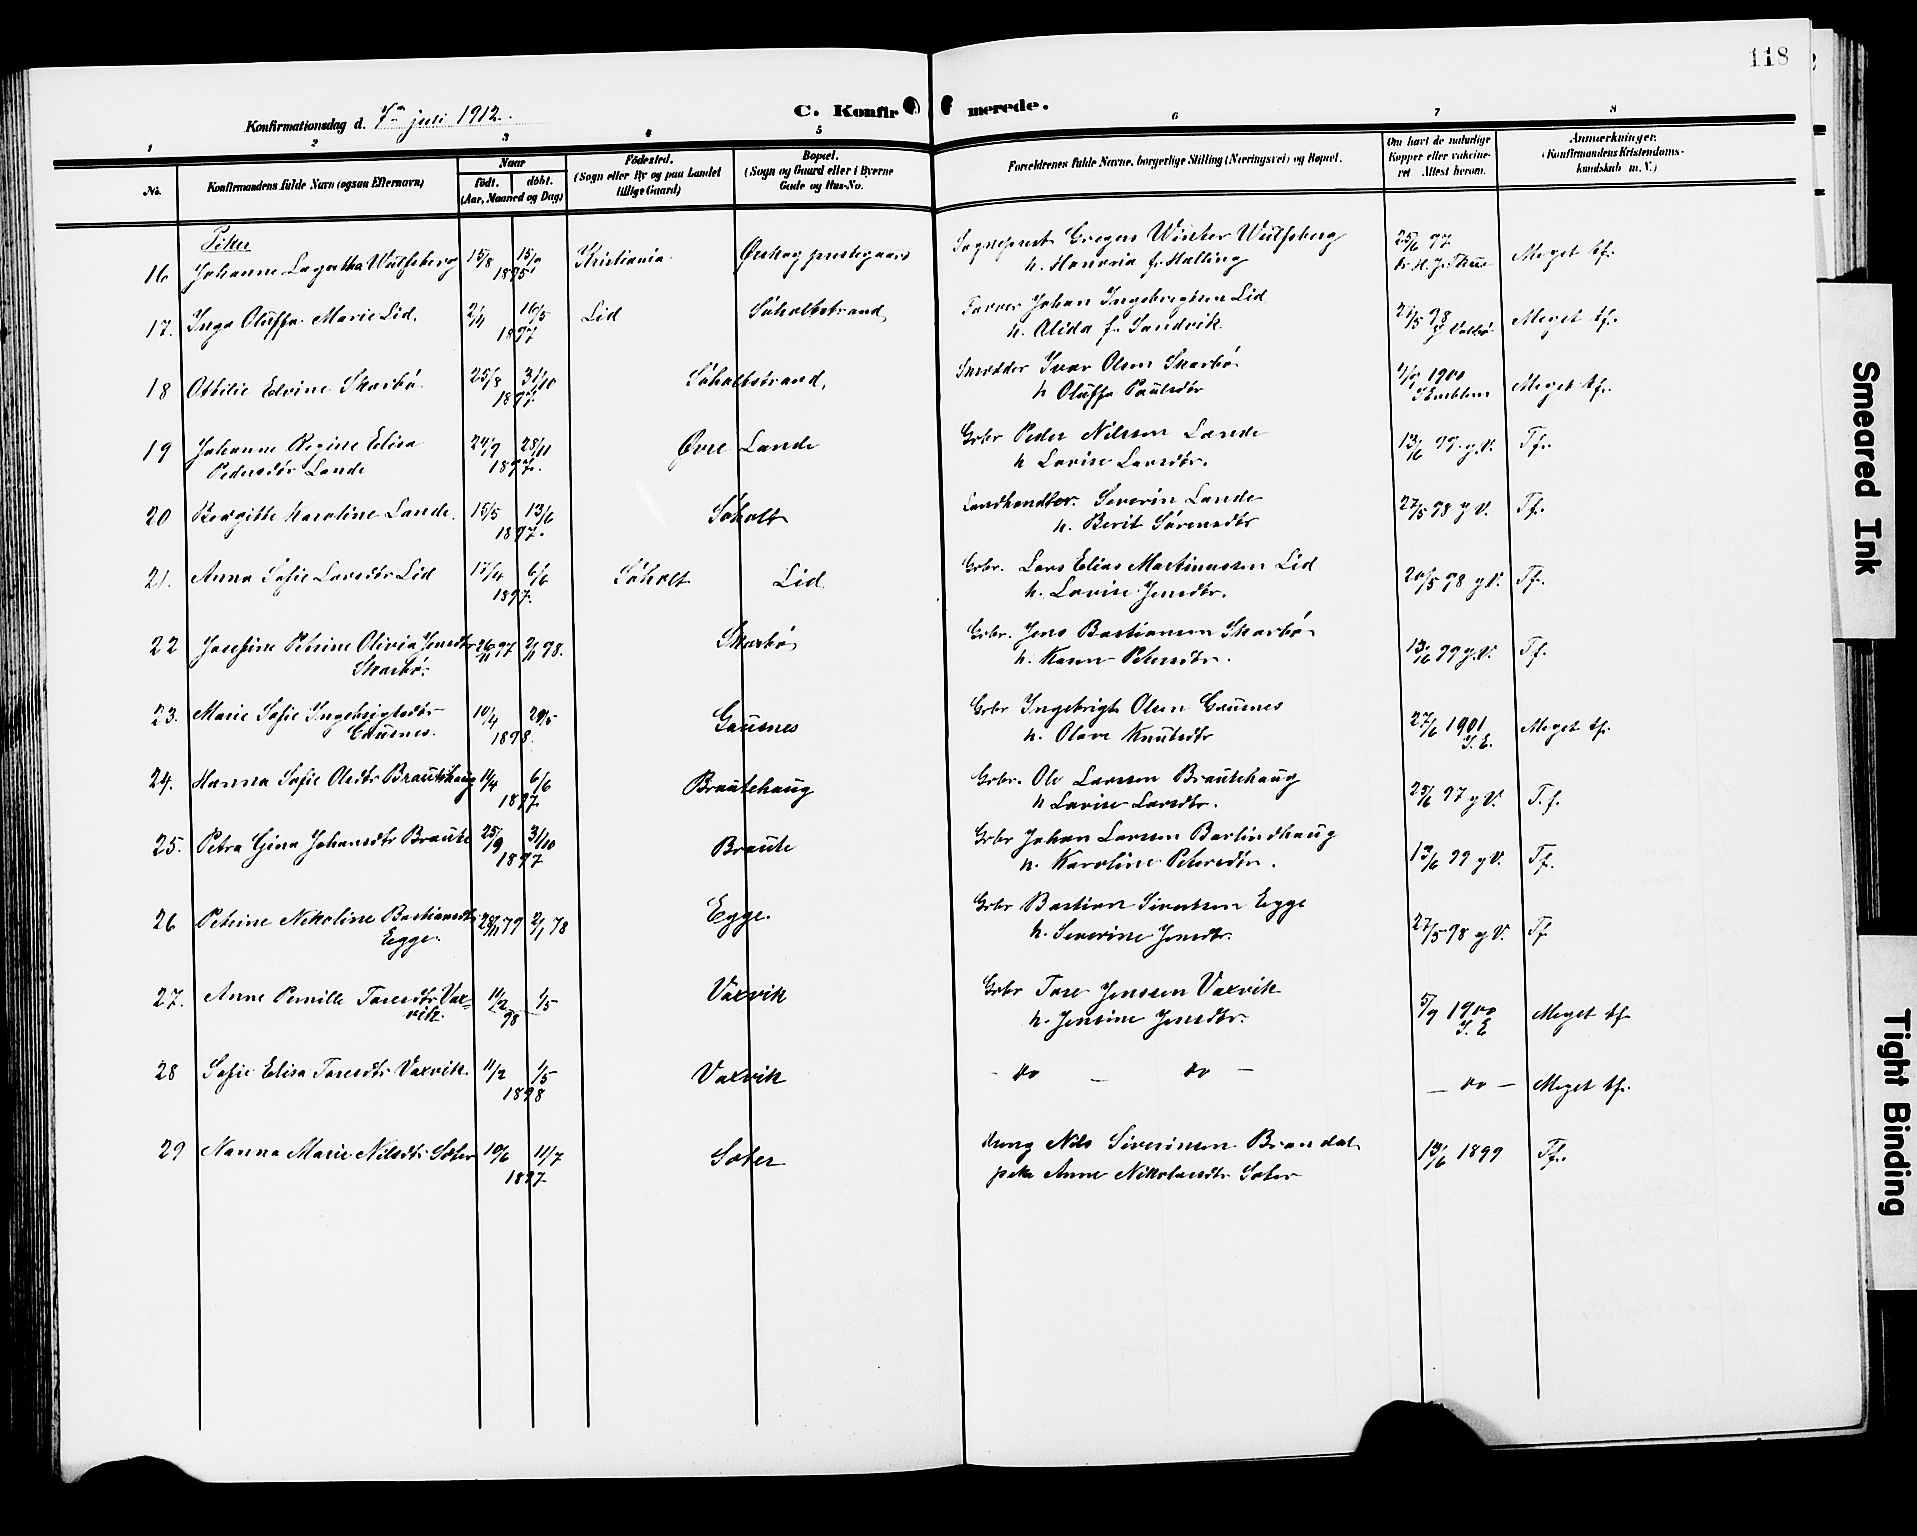 118
Konfirmationsdag d. 7de juli 1912.
C. Konfir merede.
1 2 3 4 5 6 7 8
No.
Konfirmandens fulde Navn (ogsaa Efternavn)
Naar
født. døbt.
(Aar, Maaned og Dag)
Fødested.
(Sogn eller By og paa Landet
tillige Gaard)
Bopæl.
(Sogn og Gaard eller i Byerne
Gade og Hus-No.
Forældrenes fulde Navne, borgerlige Stilling (Næringsvei) og Bopæl.
Om havt de naturlige
Kopper eller vakcine-
ret Attest herom.
Anmærkninger.
(Konfirmandens Kristendoms-
kundskab m. V.)
Piker
16 Johanne Lagatha Wulfsberg 15/8 15/9 1895 Kristiania Ørskog prestegaard Sogneprest Gregers Winter Wulfsberg 25/6 97 Meget tf.
h. Honoria f. Halling
17. Inga Oluffa Marie Lid. 2/4 16/5 1897 Lid Søholtstrand Farver Johan Ingebrigtsen Lid 27/5 98 Meget tf.
h. Alida f. Sandvik
18 Ottilie Edvine Skarbø. 25/8 31/10 1897. Søholtstrand, Skrædder Ivar Olsen Skarbø 1900 Meget tf.
h Oluffa Paulsdtr
19 Johanne Regine Elisa 24/9 28/11 Øvre Lande Grbr Peder Nilssen Lande 13/6 99. g.V. Tf.
Pedersdtr Lande 1897. h Lovise Larsdtr.
20 Bergitte Karoline Lande. 15/5 13/6 1897. Søholt Landhandler. Severin Lande 27/5 98 g V. Tf.
h. Berit Sørensdtr
21. Anna Sofie Larsdtr Lid 17/4 6/6 1897. Søholt Lid Grbr. Lars Elias Martinussen Lid 20/5 98 g.V. Tf.
h. Lovise Jensdtr.
22 Josefine Petrine Olivia Jensdtr 26/11 97 2/1 98. Skarbø Grbr. Jens Bastiansen Skarbø 13/6 99 g.V. Tf.
Skarbø. h. Karen Petersdtr.
23. Marie Sofie Ingebrigtsdtr 10/4 29/5 Gausnes Grbr Ingebrigt Olsen Gausnes 27/6 1901 Meget tf.
Gausnes. 1898. h. Olave Knutsdtr I. E.
24. Hanna Sofie Olsdtr Brautehaug 1/4 6/6 1897 Brautehaug Grbr. Ole Larssen Brautehaug 25/6 97 g V. T. f.
h Lovise Larsdtr.
25. Petra Gina Johansdtr Braute 25/9 31/10 1897 Braute Grbr Johan Larssen Barlindhaug 13/6 99 g V. Tf.
h. Karoline Petersdtr.
26 Petrine Nikoline Bastiansdtr 28/11 79 2/1 78 Egge. Grbr Bastian Sivertsen Egge 27/5 98 g V. Tf
Egge. h. Severine Jensdtr.
27. Anne Pernille Toresdtr Vax- 11/2 1/5 Vaxvik Grbr Tore Jenssen Vaxvik 5/9 1900 Meget tf.
vik. 98 h. Jensine Jensdtr. I. E
28 Sofie Elisa Toresdtr Vaxvik. 11/2 1/5 1898 Vaxvik - do - do - - do - Meget tf.
29 Nanna Marie Nilsdtr Sæter 10/6 11/7 1897 Sæter Ung Nils Siversinsen Brandal 13/6 1899 Tf.
pike Anne Nikolaisdtr Sæter
Smeared Ink
Tight Binding